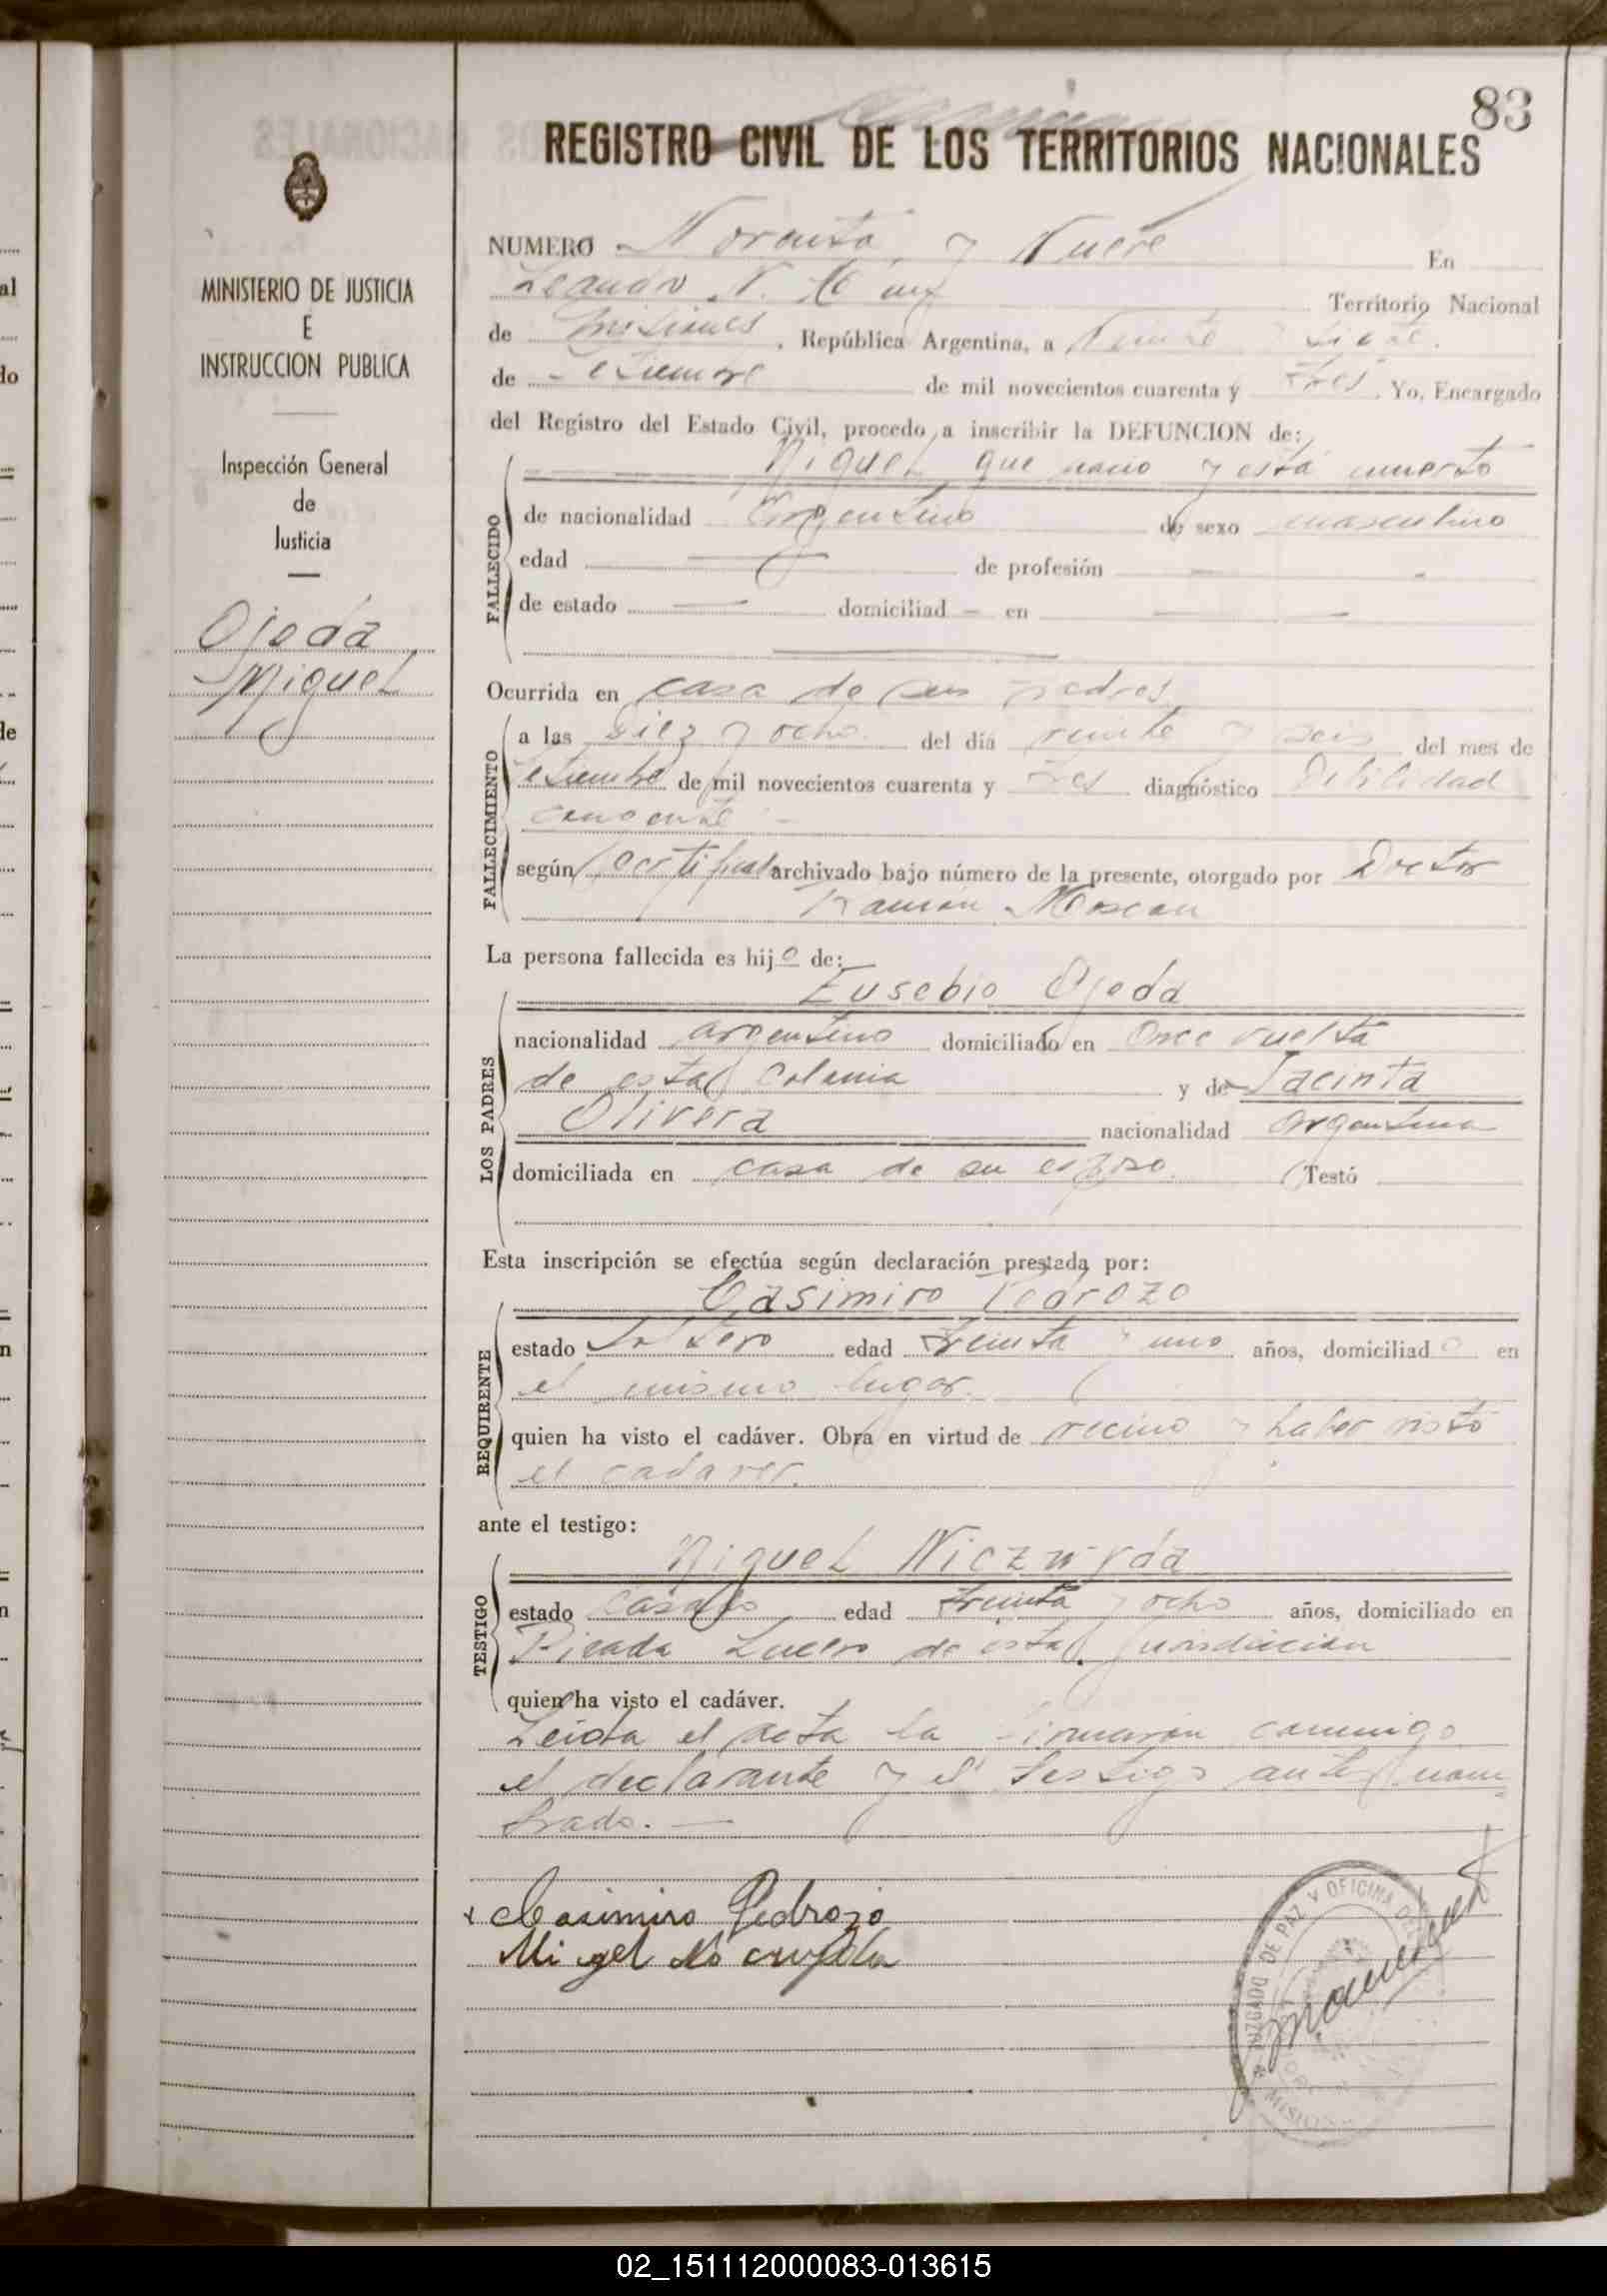 83
REGISTRO CIVIL DE LOS TERRITORIOS NACIONALES
MINISTERIO DE JUSTICIA
E
INSTRUCCION PUBLICA
Inspección General
de
Justicia
Ojeda
Miguel
NUMERO Noventa y Nueve En
Leandro N. Territorio Nacional
de Misiones, República Argentina, a Veinte y siete.
de Setiembre de mil novecientos cuarenta y tres. Yo, Encargado
del Registro del Estado Civil, procedo a inscribir la DEFUNCION de:
Miguel que nacio y está muerto
FALLECIDO
de nacionalidad Argentino de sexo masculino
edad — de profesión —
de estado — domiciliad — en —
Ocurrida en casa de sus padres
FALLECIMIENTO
a las diez y ocho. del día veinte y seis del mes de
Setiembre de mil novecientos cuarenta y tres diagnóstico Debilidad
según certificado archivado bajo número de la presente, otorgado por Doctor
Ramón
La persona fallecida es hijo de:
Eusebio Ojeda
LOS PADRES
nacionalidad argentino domiciliado en Once vuelta
de esta Colonia y de Jacinta
Olivera nacionalidad argentina
domiciliada en casa de su esposo. (Testó
Esta inscripción se efectúa según declaración prestada por:
Casimiro Pedrozo
REQUIRENTE
estado Soltero edad treinta y uno años, domiciliado en
el mismo lugar.
quien ha visto el cadáver. Obra en virtud de vecino y haber visto
el cadaver.
ante el testigo:
Miguel Niczwyda
TESTIGO
estado casado edad treinta y ocho años, domiciliado en
Picada de esta jurisdiccion
quien ha visto el cadáver.
Leida el acta la firmaron conmigo
el declarante y el testigo antes nom
brado. —
x Casimiro Pedrozo
JUZGADO DE PAZ Y OFICINA DE
MISIONES
02_151112000083-013615